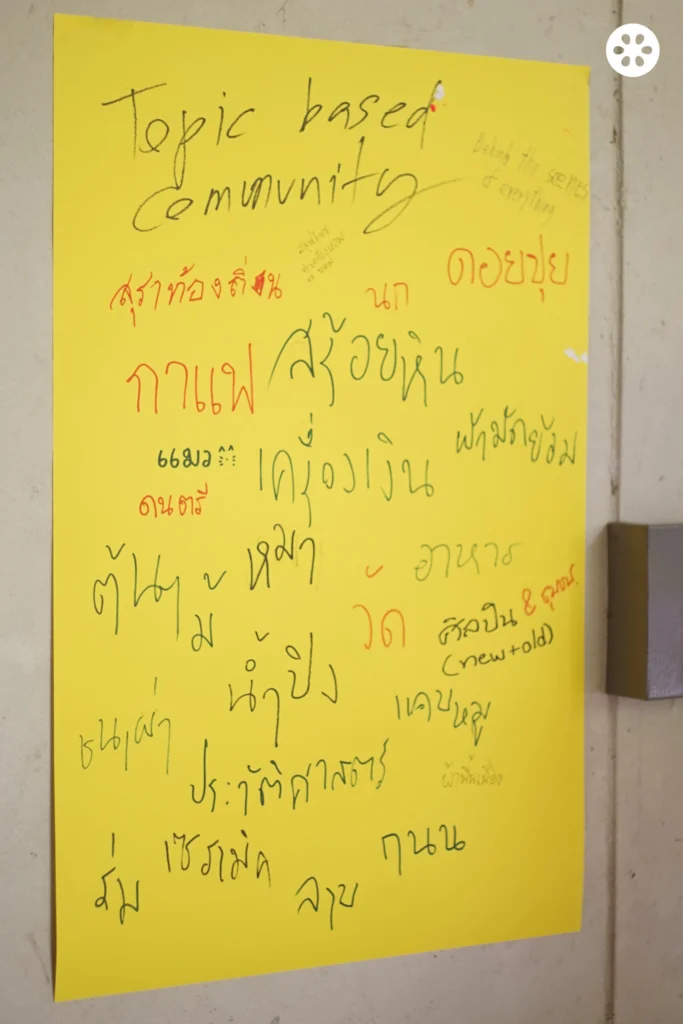 Topic based
community
Behind the scenes
of everything
สุราท้องถิ่น
นก
ดอยปุย
กาแฟ
สร้อยหิน
แมว
เครื่องเงิน
ผ้ามัดย้อม
ดนตรี
ต้นไม้
หมา
อาหาร
วัด
ศิลปิน & ชุมชน
(new+old)
น้ำปิง
ชนเผ่า
แคบหมู
ประวัติศาสตร์
ผ้าพื้นเมือง
ร่ม
เซรามิค
ลาบ
ถนน